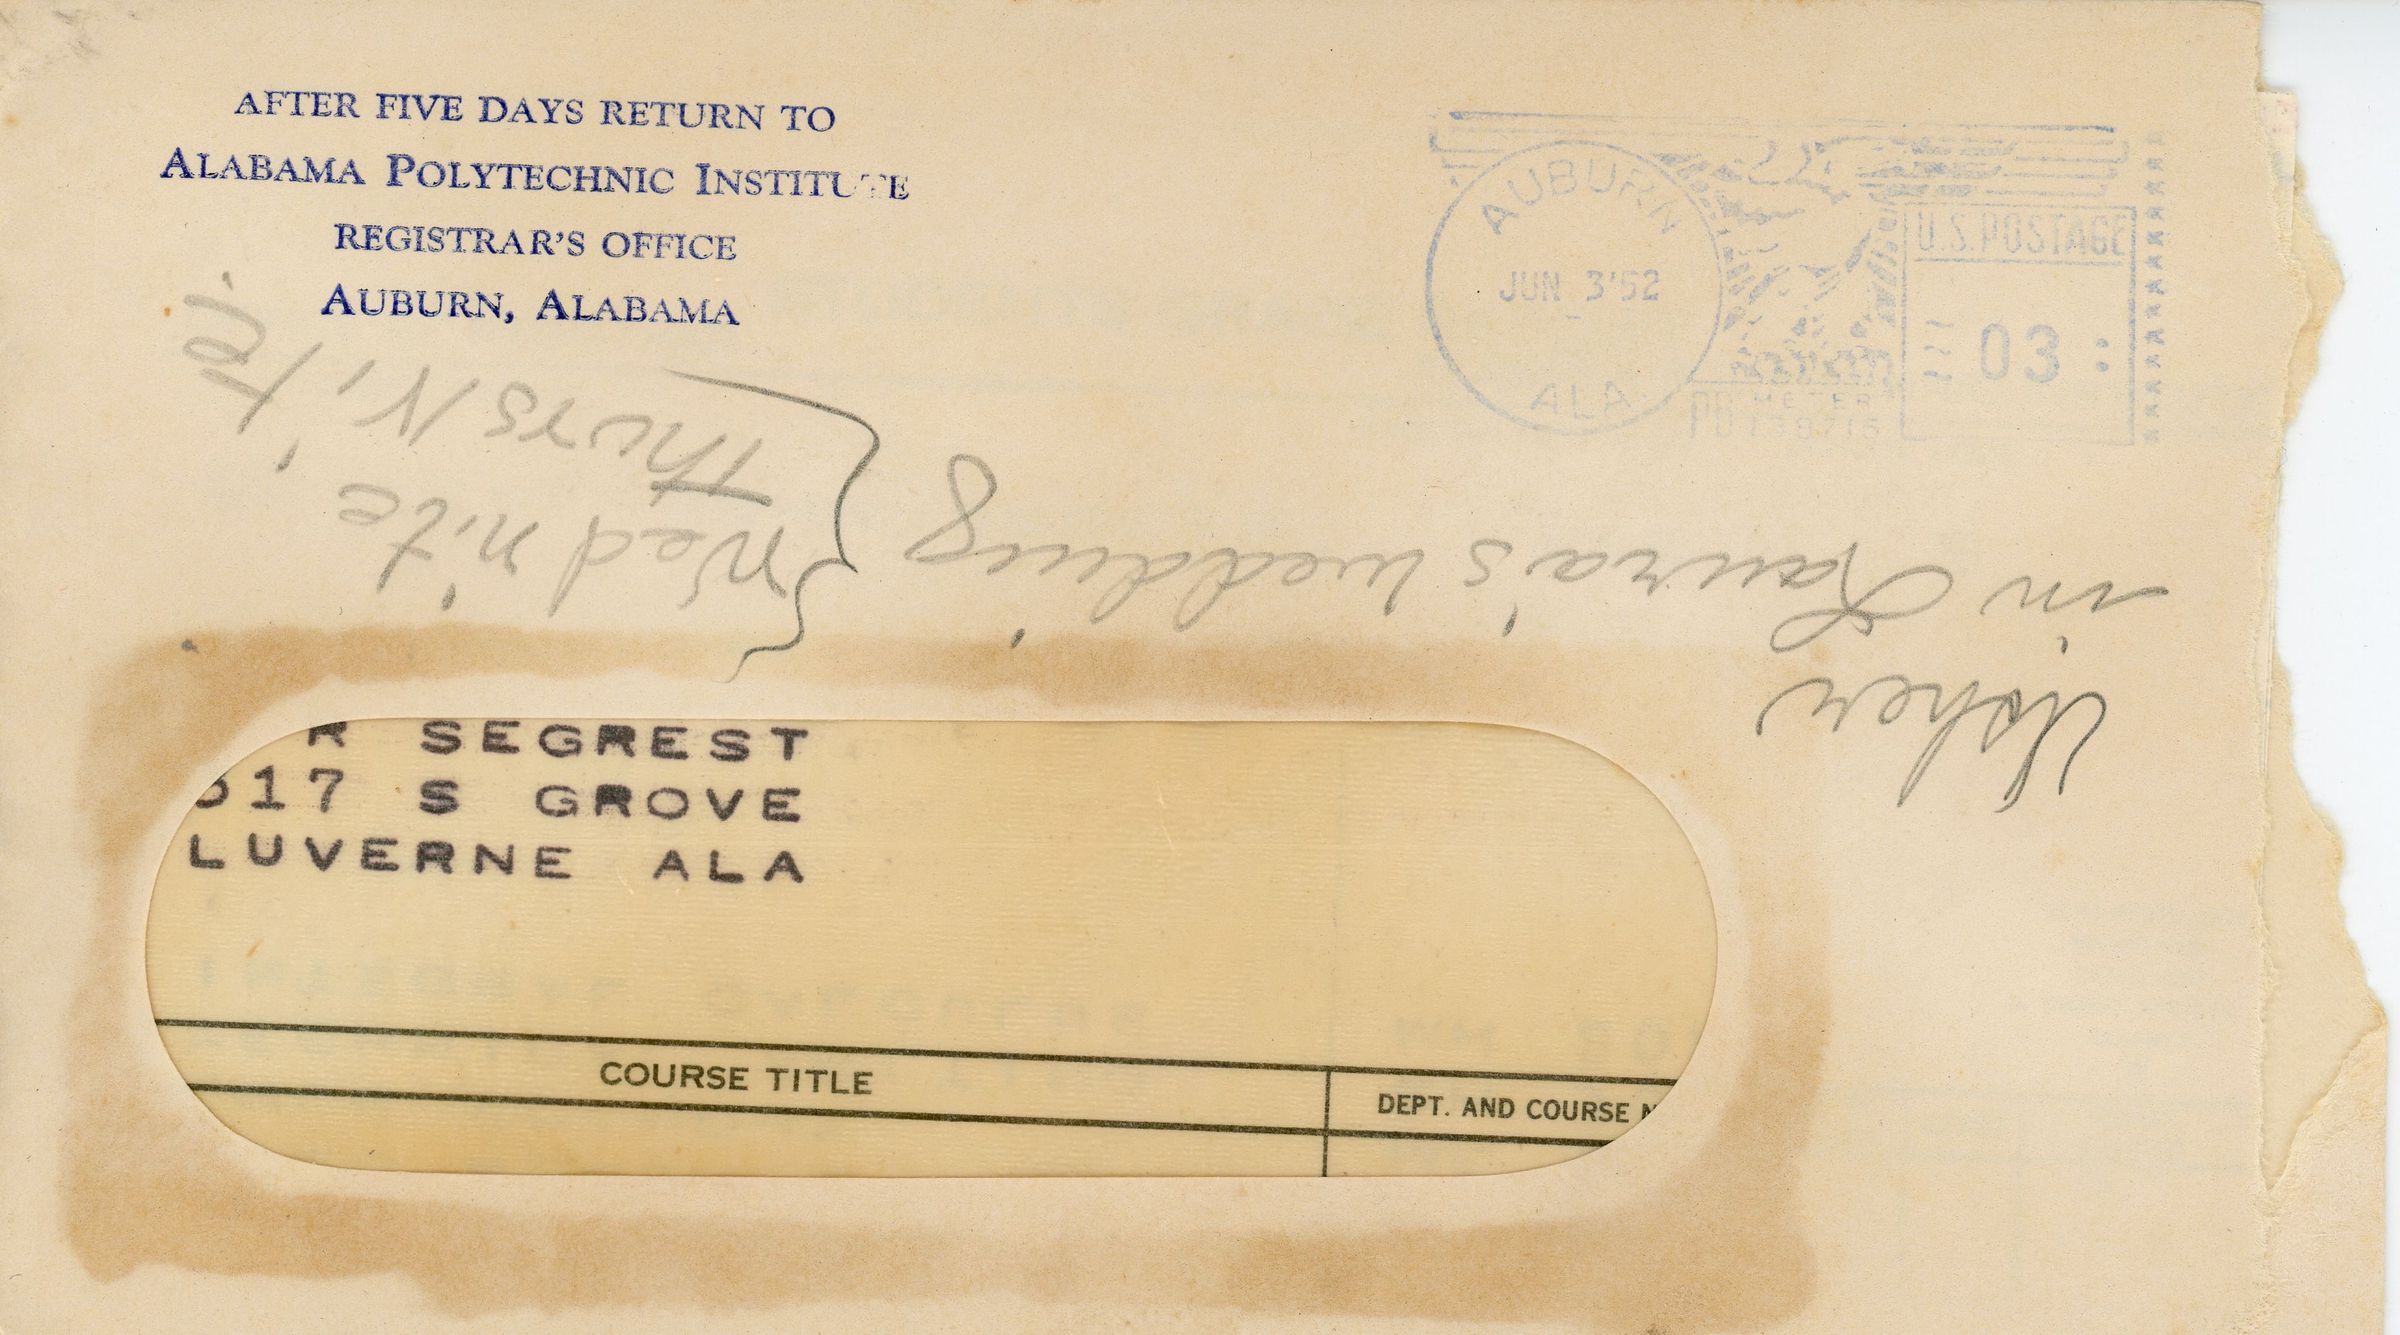 AFTER FIVE DAYS RETURN TO
ALABAMA POLYTECHNIC INSTITUTE
REGISTRAR'S OFFICE
AUBURN, ALABAMA
AUBURN
JUN 3'52
ALA
U.S. POSTAGE
03
PB METER
Usher
in Laura's wedding
Wed nite
Thurs Nite
R SEGREST
517 S GROVE
LUVERNE ALA
COURSE TITLE
DEPT. AND COURSE N